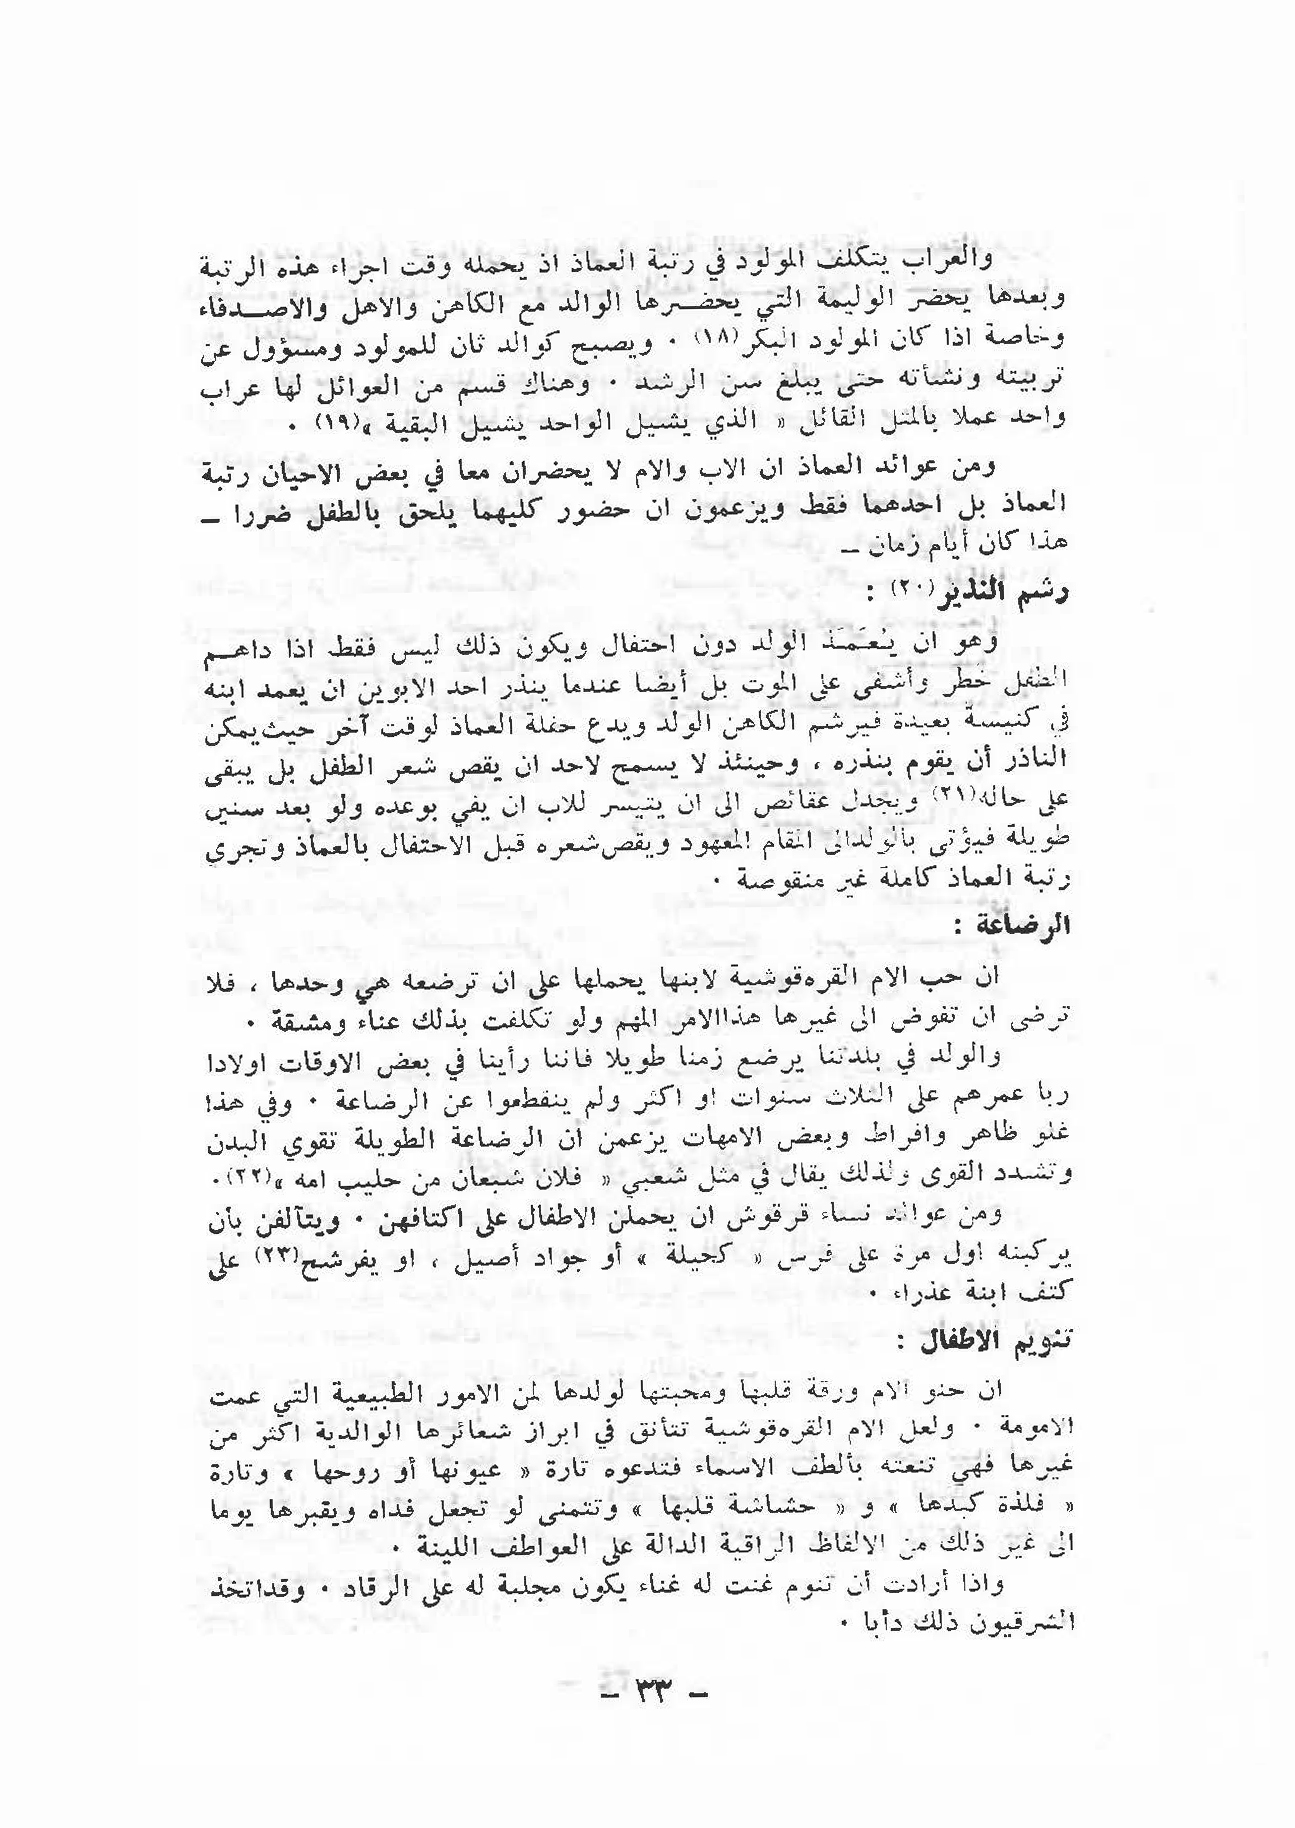 والعراب يتكلف المولود في رتبة العماذ اذ يحمله وقت اجراء هذه الرتبة
وبعدها يحضر الوليمة التي يحضرها الوالد مع الكاهن والاهل والاصدقاء
وخاصة اذا كان المولود البكر(١٨) ٠ ويصبح كوالد ثان للمولود ومسؤول عن
تربيته ونشأته حتى يبلغ سن الرشد ٠ وهناك قسم من العوائل لها عراب
واحد عملا بالمثل القائل « الذي يشيل الواحد يشيل البقية »(١٩) ٠
ومن عوائد العماذ ان الاب والام لا يحضران معا في بعض الاحيان رتبة
العماذ بل احدهما فقط ويزعمون ان حضور كليهما يلحق بالطفل ضررا –
هذا كان أيام زمان –
رشم النذير(٢٠) :
وهو ان يُعَمَّذ الولد دون احتفال ويكون ذلك ليس فقط اذا داهم
الطفل خطر وأشفى على الموت بل أيضا عندما ينذر احد الابوين ان يعمد ابنه
في كنيسة بعيدة فيرشم الكاهن الولد ويدع حفلة العماذ لوقت آخر حيث يمكن
الناذر أن يقوم بنذره ، وحينئذ لا يسمح لاحد ان يقص شعر الطفل بل يبقى
على حاله(٢١) ويجدل عقائص الى ان يتيسر للاب ان يفي بوعده ولو بعد سنين
طويلة فيؤتى بالولد الى المقام المعهود ويقص شعره قبل الاحتفال بالعماذ وتجري
رتبة العماذ كاملة غير منقوصة ٠
الرضاعة :
ان حب الام القره‌قوشية لابنها يحملها على ان ترضعه هي وحدها ، فلا
ترضى ان تفوض الى غيرها هذا الامر المهم ولو تكلفت بذلك عناء ومشقة ٠
والولد في بلدتنا يرضع زمنا طويلا فاننا رأينا في بعض الاوقات اولادا
ربا عمرهم على الثلاث سنوات او اكثر ولم ينقطعوا عن الرضاعة ٠ وفي هذا
غلو ظاهر وافراط وبعض الامهات يزعمن ان الرضاعة الطويلة تقوي البدن
وتشدد القوى ولذلك يقال في مثل شعبي « فلان شبعان من حليب امه »(٢٢)٠
ومن عوائد نساء قرقوش ان يحملن الاطفال على اكتافهن ٠ ويتآلفن بأن
يركبنه اول مرة على فرس « كحيلة » أو جواد أصيل ، او يفرشح(٢٣) على
كتف ابنة عذراء ٠
تنويم الاطفال :
ان حنو الام ورقة قلبها ومحبتها لولدها لمن الامور الطبيعية التي عمت
الامومة ٠ ولعل الام القره‌قوشية تتأنق في ابراز شعائرها الوالدية اكثر من
غيرها فهي تنعته بألطف الاسماء فتدعوه تارة « عيونها أو روحها » وتارة
« فلذة كبدها » و « حشاشة قلبها » وتتمنى لو تجعل فداه ويقبرها يوما
الى غير ذلك من الالفاظ الراقية الدالة على العواطف اللينة ٠
واذا أرادت أن تنوم غنت له غناء يكون مجلبة له على الرقاد ٠ وقد اتخذ
الشرقيون ذلك دأبا ٠
– ٣٣ –